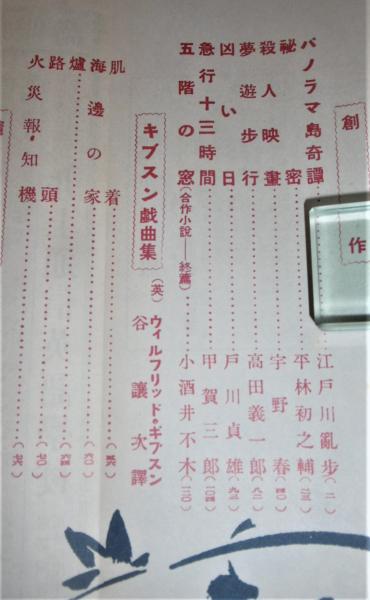 創作
パノラマ島奇譚 江戸川亂歩 (二)
祕密 平林初之輔
殺人映畫 宇野春
夢遊步行 高田義一郎
凶い日 戸川貞雄
急行十三時間 甲賀三郎 (一〇四)
五階の窓 (合作小說――終篇) 小酒井不木 (一一〇)
キブスン戯曲集
(英) ウィルフリッド・ギブスン
谷讓次譯
肌着
海邊の家 (六〇)
爐 (六四)
路頭 (七〇)
火災報知機 (七六)